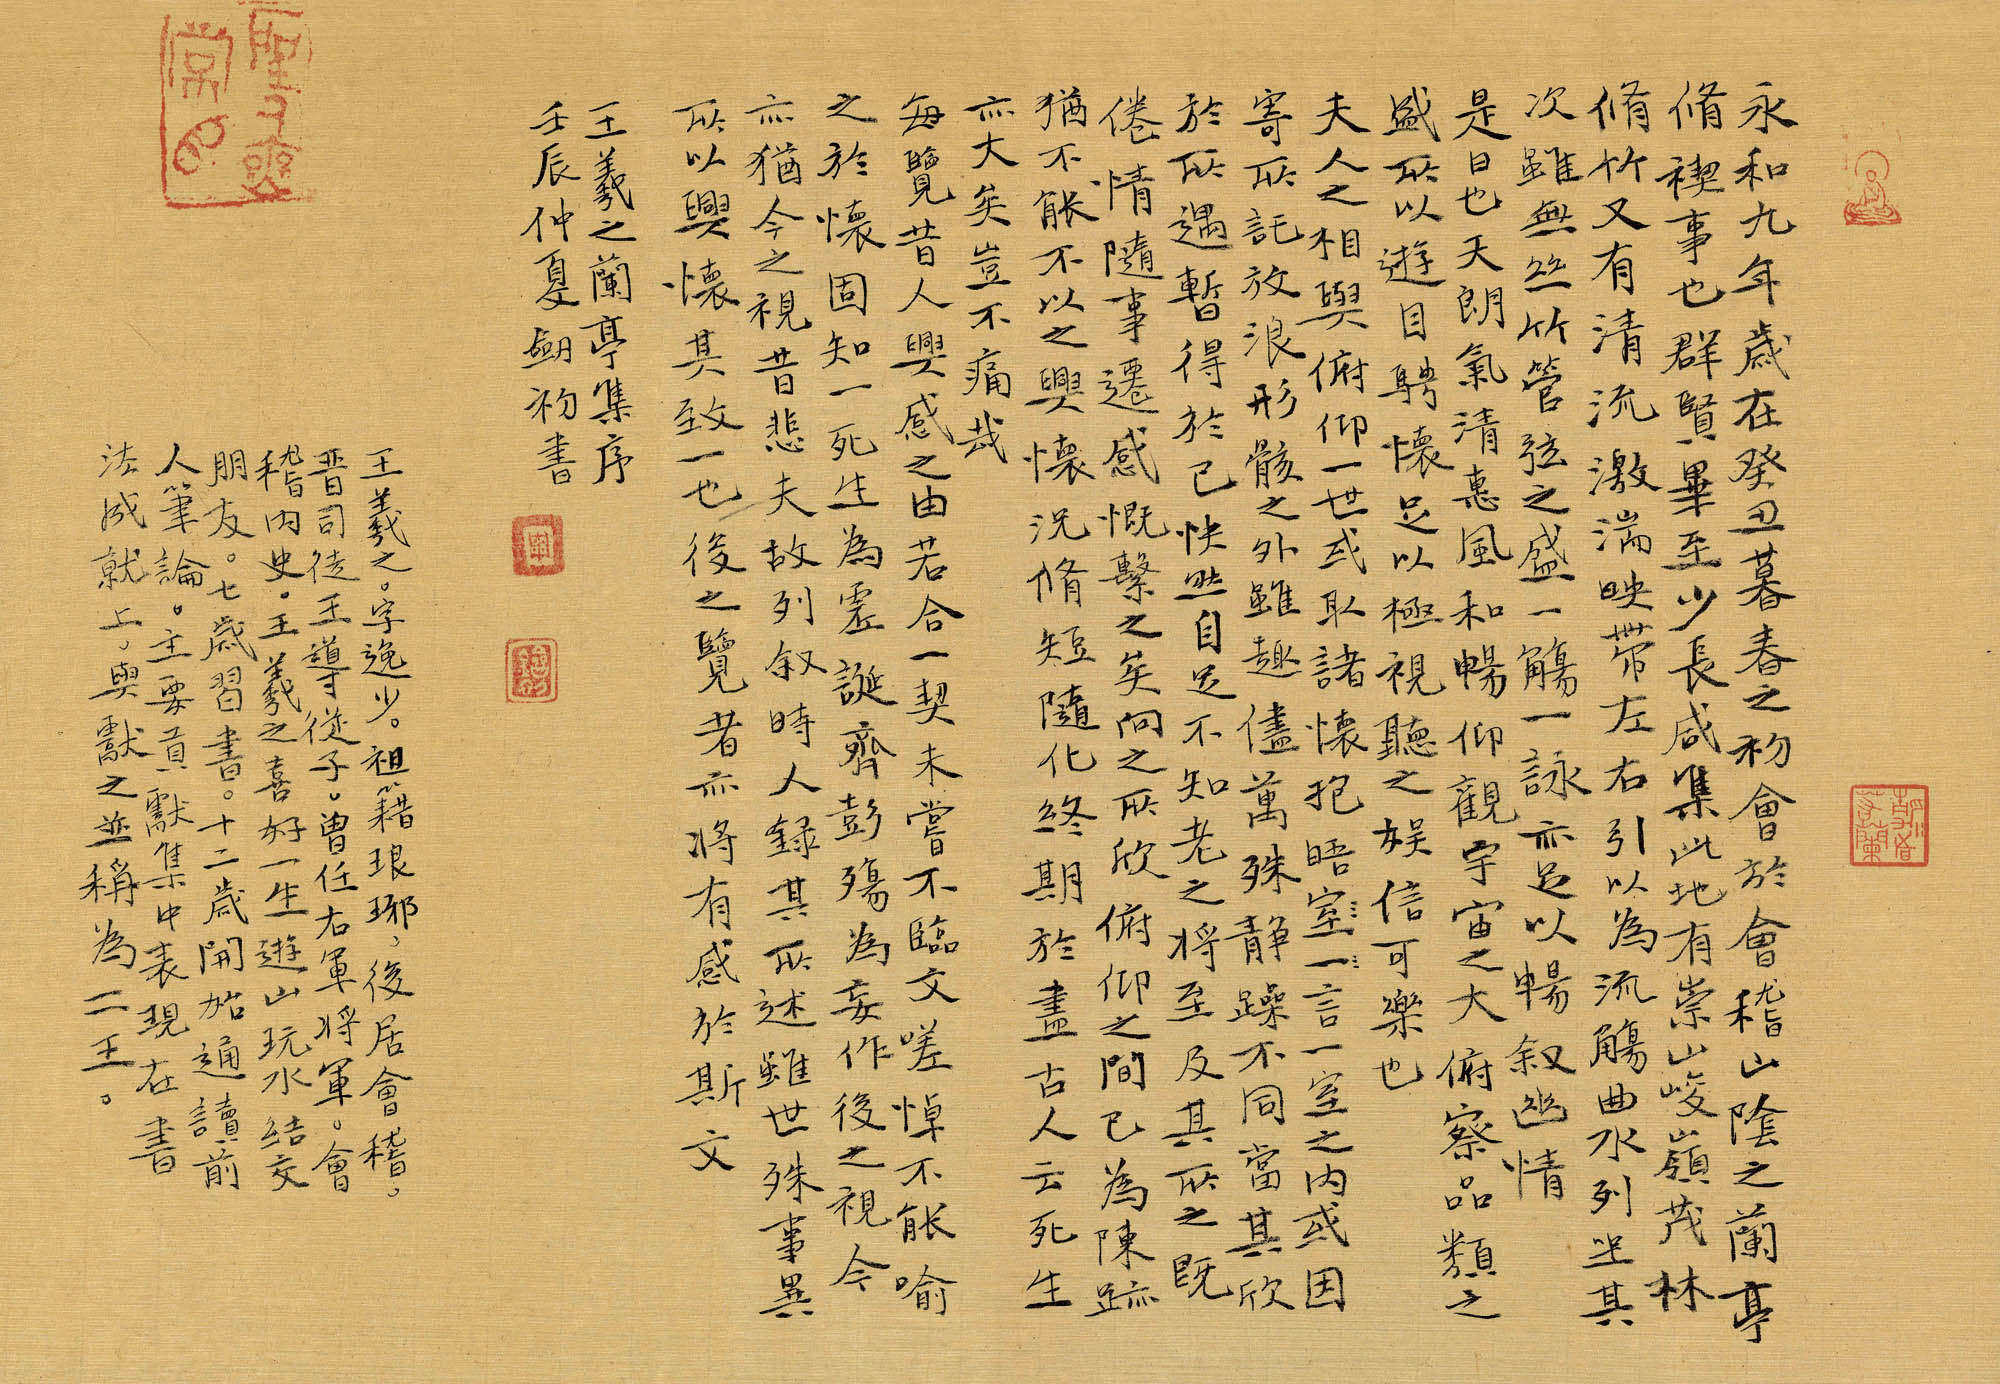 永和九年歲在癸丑暮春之初會於會稽山陰之蘭亭
脩禊事也群賢畢至少長咸集此地有崇山峻嶺茂林
脩竹又有清流激湍映帶左右引以為流觴曲水列坐其
次雖無絲竹管弦之盛一觴一詠亦足以暢叙幽情
是日也天朗氣清惠風和暢仰觀宇宙之大俯察品類之
盛所以遊目騁懷足以極視聽之娛信可樂也
夫人之相與俯仰一世或取諸懷抱晤室一言一室之内或因
寄所託放浪形骸之外雖趣儘萬殊靜躁不同當其欣
於所遇暫得於己快然自足不知老之將至及其所之既
倦情隨事遷感慨繫之矣向之所欣俯仰之間已為陳跡
猶不能不以之興懷況脩短隨化終期於盡古人云死生
亦大矣豈不痛哉
每覽昔人興感之由若合一契未嘗不臨文嗟悼不能喻
之於懷固知一死生為虛誕齊彭殤為妄作後之視今
亦猶今之視昔悲夫故列叙時人錄其所述雖世殊事異
所以興懷其致一也後之覽者亦將有感於斯文
王羲之蘭亭集序
壬辰仲夏初書
王羲之。字逸少。祖籍琅琊，後居會稽。
晉司徒王導從子。曾任右軍將軍。會
稽内史。王羲之喜好一生遊山玩水結交
朋友。七歲習書。十二歲開始通讀前
人筆論。主要貢獻集中表現在書
法成就上，與獻之並稱為二王。